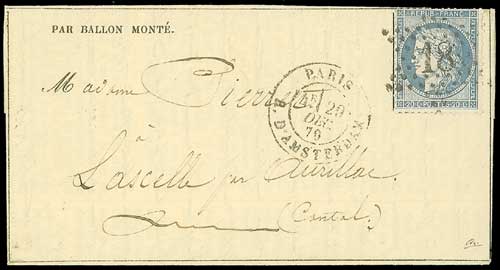 PAR BALLON MONTÉ.
REPUB. FRANC.
18
POSTES
PARIS
29
DEC.
70
R. D'AMSTERDAM
Madame Pierre
à
Lascelle par Aurillac
(Cantal)